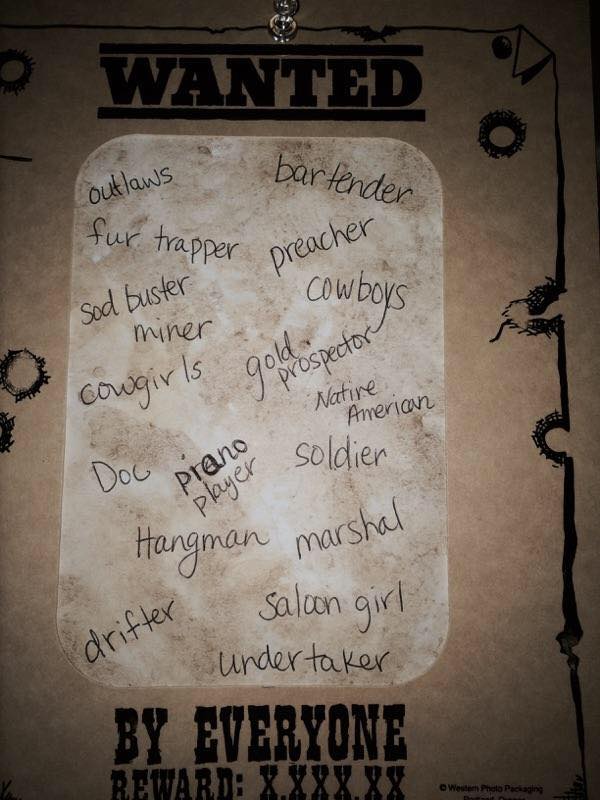 WANTED
outlaws
bartender
fur trapper
preacher
sod buster
cowboys
miner
gold
prospector
cowgirls
Native
American
Doc
piano
player
soldier
Hangman
marshal
drifter
saloon girl
undertaker
BY EVERYONE
REWARD: X.XXX.XX
© Western Photo Packaging